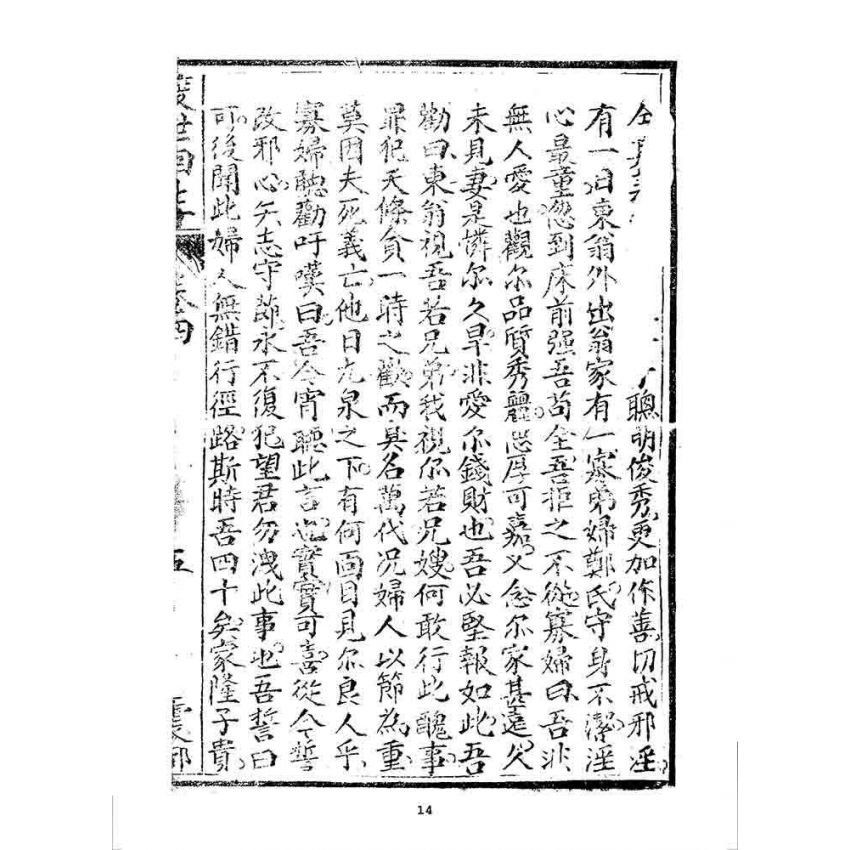 聰明俊秀更加作善切戒邪淫
有一日東翁外出翁家有一寡弟婦鄭氏守身不潔淫
心最重忽到床前強吾苟全吾拒之不從寡婦曰吾非
無人愛也觀尔品質秀麗忠厚可嘉又念尔家甚遠久
未見妻是憐尔久旱非愛尔錢財也吾必堅報如此吾
勸曰東翁視吾若兄弟我視尔若兄嫂何敢行此醜事
罪犯天條貪一時之歡而臭名萬代况婦人以節為重
莫因夫死義亡他日九泉之下有何面目見尔良人乎
寡婦聽勸吁嘆曰吾今宵聽此言心實實可喜從今誓
改邪心矢志守節永不復犯望君勿洩此事也吾誓曰
可後聞此婦人無錯行徑路斯時吾四十矣家隆子貴
四 五
14